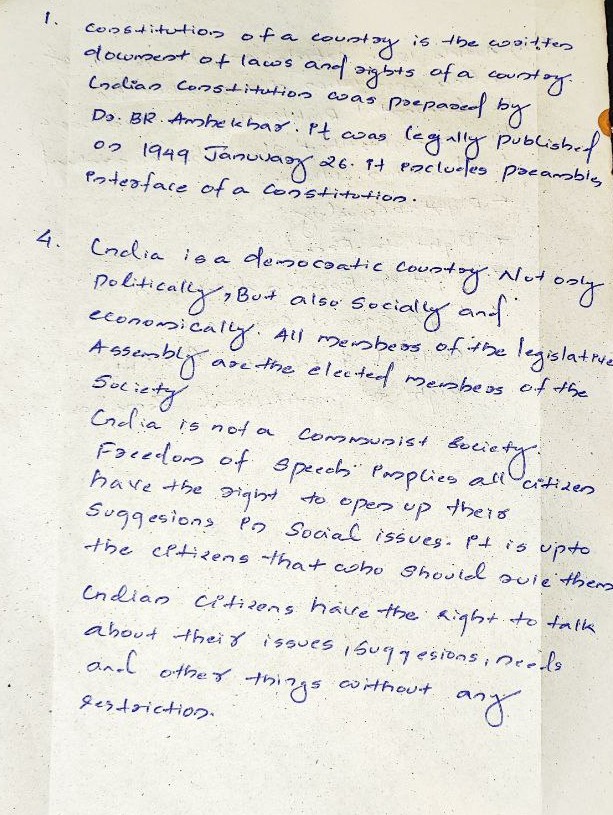 1. Constitution of a country is the written
document of laws and rights of a country.
Indian Constitution was prepared by
Dr. BR. Ambekhar. It was legally published
on 1949 Januvary 26. It includes preambles
interface of a Constitution.
4. India is a democratic country. Not only
Politically, But also Socially and
economically. All members of the legislative
Assembly are the elected members of the
Society
India is not a communist Society.
Freedom of speech implies all citizen
have the right to open up their
Suggesions in Social issues. It is upto
the citizens that who should rule them
Indian citizens have the right to talk
about their issues, suggesions, needs
and other things without any
restriction.